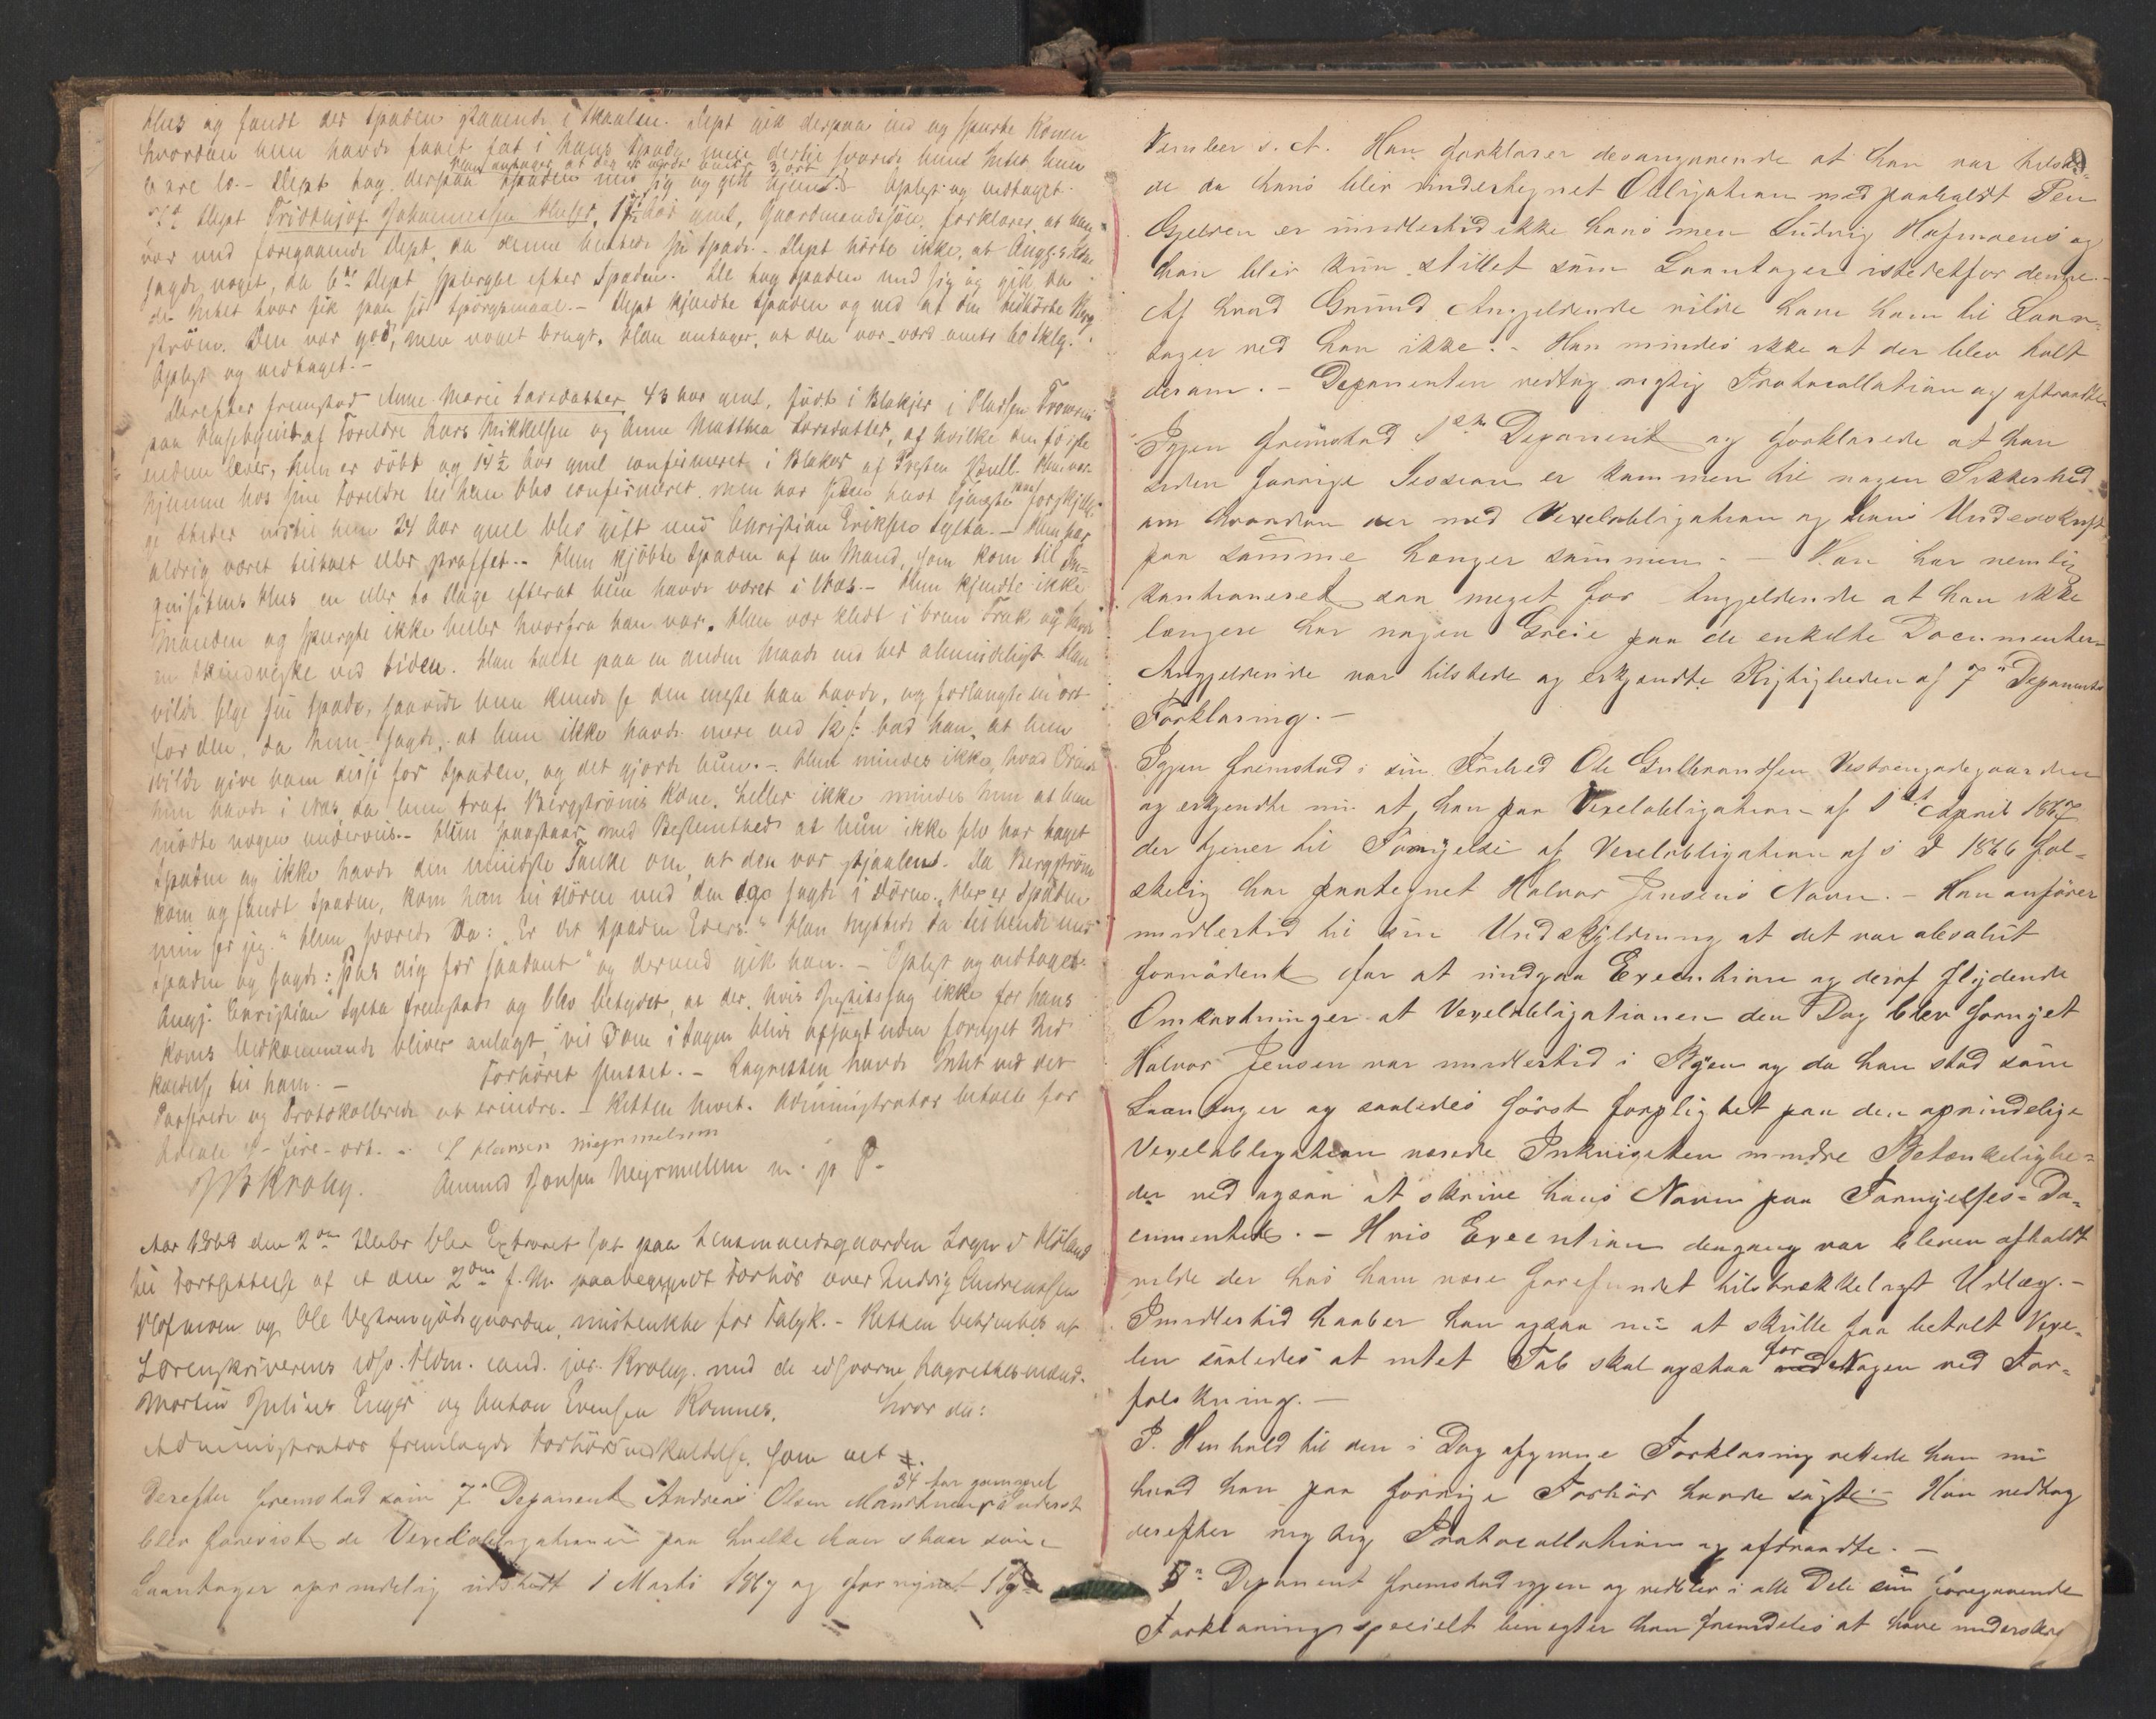 Hus og fandt der Spaden staaende i Skaalen. Dept gik derpaa ind og spurte Konen
hvordan hun havde faaet fat i hans Spade, men dertil svarede hund Intet, hun
bare lo. - Dept tog derpaa Spaden med sig og gik hjem. - Oplæst og vedtaget.
Han antager at den er værdt 3 ort
Dept Fridthjof Johannessen Huser, 17½ aar gml, Gaardmandssøn, forklarer, at han
var med foregaaende Dept, da denne hentede sin Spade. - Dept hørte ikke, at Angj.s Kone
sagde noget, da 6te Dept spurgte efter Spaden. De tog Spaden med sig og gik da
de Intet Svar fik paa sit Spørgsmaal. - Dept kjendte Spaden og ved at den tilhørte Berg
strøm. Den var god, men noget brugt. Han antager, at den var værd omtr 60 Sklg.
Oplæst og vedtaget. -
Derefter fremstod Anne Marie Larsdatter 43 aar gml, født i Blakjer i Pladsen
paa af Forældre Lars Mikkelsen og Anne Matthea Larsdatter, af hvilke den første
endnu lever, hun er døbt og 14½ Aar gml confirmeret i Blaker af Presten Bull. Hun var
hjemme hos sine Forældre til hun blev confirmeret men har siden havt Tjeneste paa forskjelli-
ge Steder indtil hun 24 Aar gml blev gift med Christian Eriksen Sylta. - Hun har
aldrig været tiltalt eller straffet. - Hun kjøbte Spaden af en Mand, som kom til In-
quisitens Hus en eller to Dage efterat hun havde været i Næs. - Hun kjendte ikke
Manden og spurgte ikke heller hvorfra han var. Han var klædt i brun Frak og havde
en Skindveske ved Siden. Han talte paa en anden Maade end her almindeligt. Han
vilde sælge sin Spade, saavidt hun kunde se den eneste han havde, og forlangte en ort
for den, da hun sagde, at hun ikke havde mere end 12 s: bad han, at hun
vilde give ham disse for Spaden, og det gjorde hun. - Hun mindes ikke, hvad Ærinde
hun havde i Næs, da hun traf Bergstrøms Kone, heller ikke mindes hun at hun
mødte nogen underveis. - Hun paastaar med Bestemthed at hun ikke selv har taget
Spaden og ikke havde den mindste Tanke om, at den var stjaalen. Da Bergstrøm
kom og fandt Spaden, kom han til Døren med den og sagde i Døren, "her er Spaden
min ser jeg." Hun svarede Da: "Er det Spaden Eders." Han tru­ede da til hende med
Spaden og sagde: "Pas dig for saadant" og dermed gik han. - Oplæst og vedtaget.
Angj. Christian Sylta fremstod og blev betydet, at der, hvis Justitssag ikke for hans
Kones Vedkommende bliver anlagt, vil Dom i Sagen blive afsagt uden fornyet Ind
kaldelse til ham. - Forhøret sluttet. - Lagretten havde Intet ved det
Passerede og Protokollerede at erindre. - Retten hævet. Administrator betalte for
Locale 4 - fire - ort. - L Hansen
JB Kroby. Amund Jonsen m. p. P.
Aar 1868 den 2den blev Extraret sat paa Lensmandsgaarden i Høland
til Fortsættelse af et den 2den f. M. paabegyndt Forhør over Ludvig Andreassen
Hofmoen og Ole Vestrengadegaarden, mistænkte for Falsk. - Retten betjentes af
Sorenskriverens edsv. Fldm. cand. jur. Kroby med de edsvorne Lagrettesmænd.
Martin Julius Enger og Anton Evensen Romnes. Hvor da:
Administrator fremlagde Forhørsindkaldelse, som act
34 Aar gammel
Derefter fremstod som 7de Deponent Andreas Olsen
blev forevist de Vexelobligationer paa hvilke han staar som
Laantager oprindelig udstedt 1 Marts 1867 og fornyet 1
9
vember s. A. Han forklarer desangaaende at han var tilste-
de da hans blev undertegnet Obligation med paaholdt Pen
Gjelden er imidlertid ikke hans men Ludvig Hofmoens og
han blev kun stillet som Laantager istedetfor denne. -
Af hvad Grund Angjeldende vilde have ham til Laan-
tager ved han ikke. - Han mindes ikke at der blev talt
derom. - Deponenten vedtog rigtig Protocollation og aftraadte.
Igjen fremstod 1ste Deponent og forklarede at han
siden forrige Session er kommen til nogen Sikkerhed
om hvordan der med Vexelobligation og hans Underskrift
paa samme hænger sammen. - Han har nemlig
kautioneret saa meget for Angjeldende at han ikke
længere har nogen Greie paa de enkelte Documenter.
Angjeldende var tilstede og erkjendte Rigtigheden af 7de Deponents
Forklaring. -
Igjen fremstod i sin Frihed Ole Gulbrandsen Vestrengadegaarden
og erkjendte nu at han paa Vexelobligation af 1st April 1867
der tjener til Fornyelse af Vexelobligation af s D 1866 fal-
skelig har paategnet Halvor Jensens Navn. - Han anfører
imidlertid til sin Undskyldning at det var absolut
fornødent for at undgaa Execution og deraf flydende
Omkostninger at Vexelobligationen den Dag blev fornyet
Halvor Jensen var imidlertid i Byen og da han stod som
Laantager og saaledes først forpligtet paa den oprindelige
Vexelobligation nærede Inkvisiten mindre Betænkelighe-
der ved ogsaa at skrive hans Navn paa Fornyelses-Do-
cumentet. - Hvis Execution dengang var bleven afholdt
vilde der hos ham være forefundet tilstrækkeligt Udlæg. -
Imidlertid haaber han ogsaa nu at skulle faa betalt Vexe-
len saaledes at intet Tab skal opstaa for Nogen ved For-
falskning. -
I Henhold til den i Dag afgivne Forklaring rettede han nu
hvad han paa forrige Forhør havde sagt. - Han vedtog
derefter rigtig Protocollation og aftraadte. -
5te Deponent fremstod igjen og vedblev i alle Dele sin foregaaende
Forklaring specielt benegter han fremdeles at have underskre